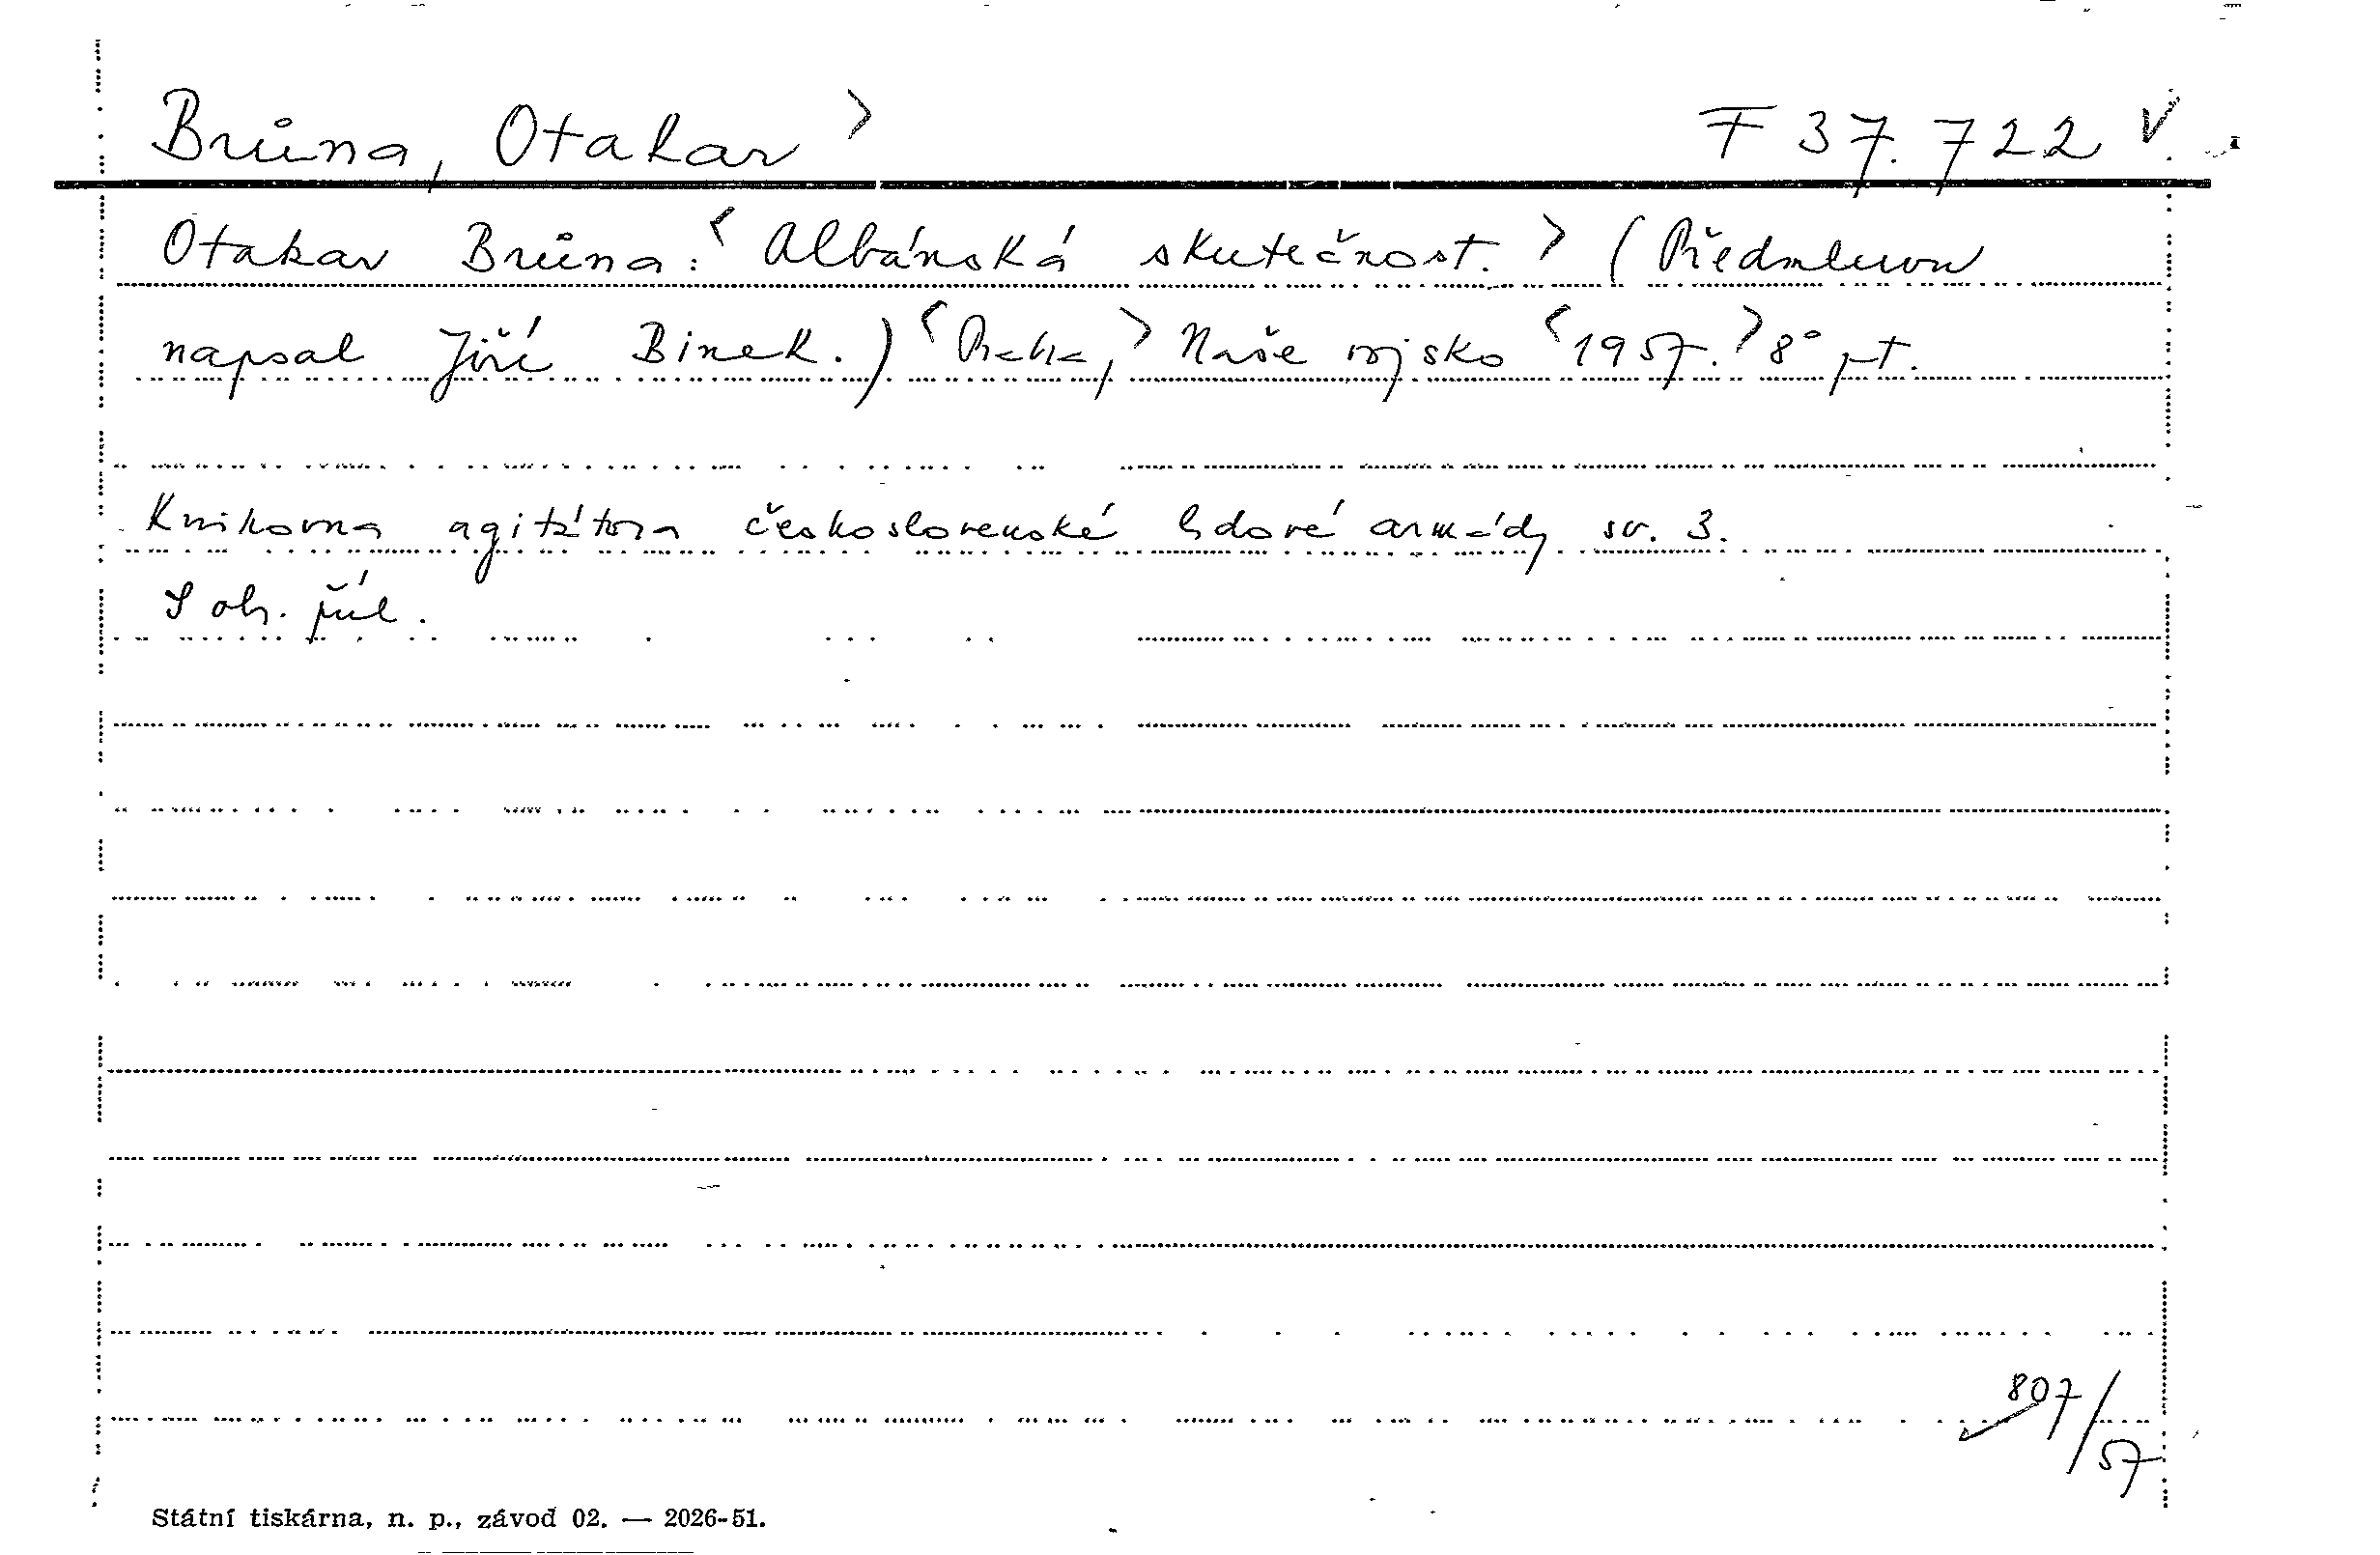 Brůna, Otakar > F 37.722 V
Otakar Brůna: < Albánská skutečnost. > (Předmluvu
napsal Jiří Binek.) < Praha, > Naše vojsko < 1957. > 8° pt.
Knihovna agitátora československé lidové armády sv. 3.
S obr. příl.
807/
57
Státní tiskárna, n. p., závod 02. — 2026-51.